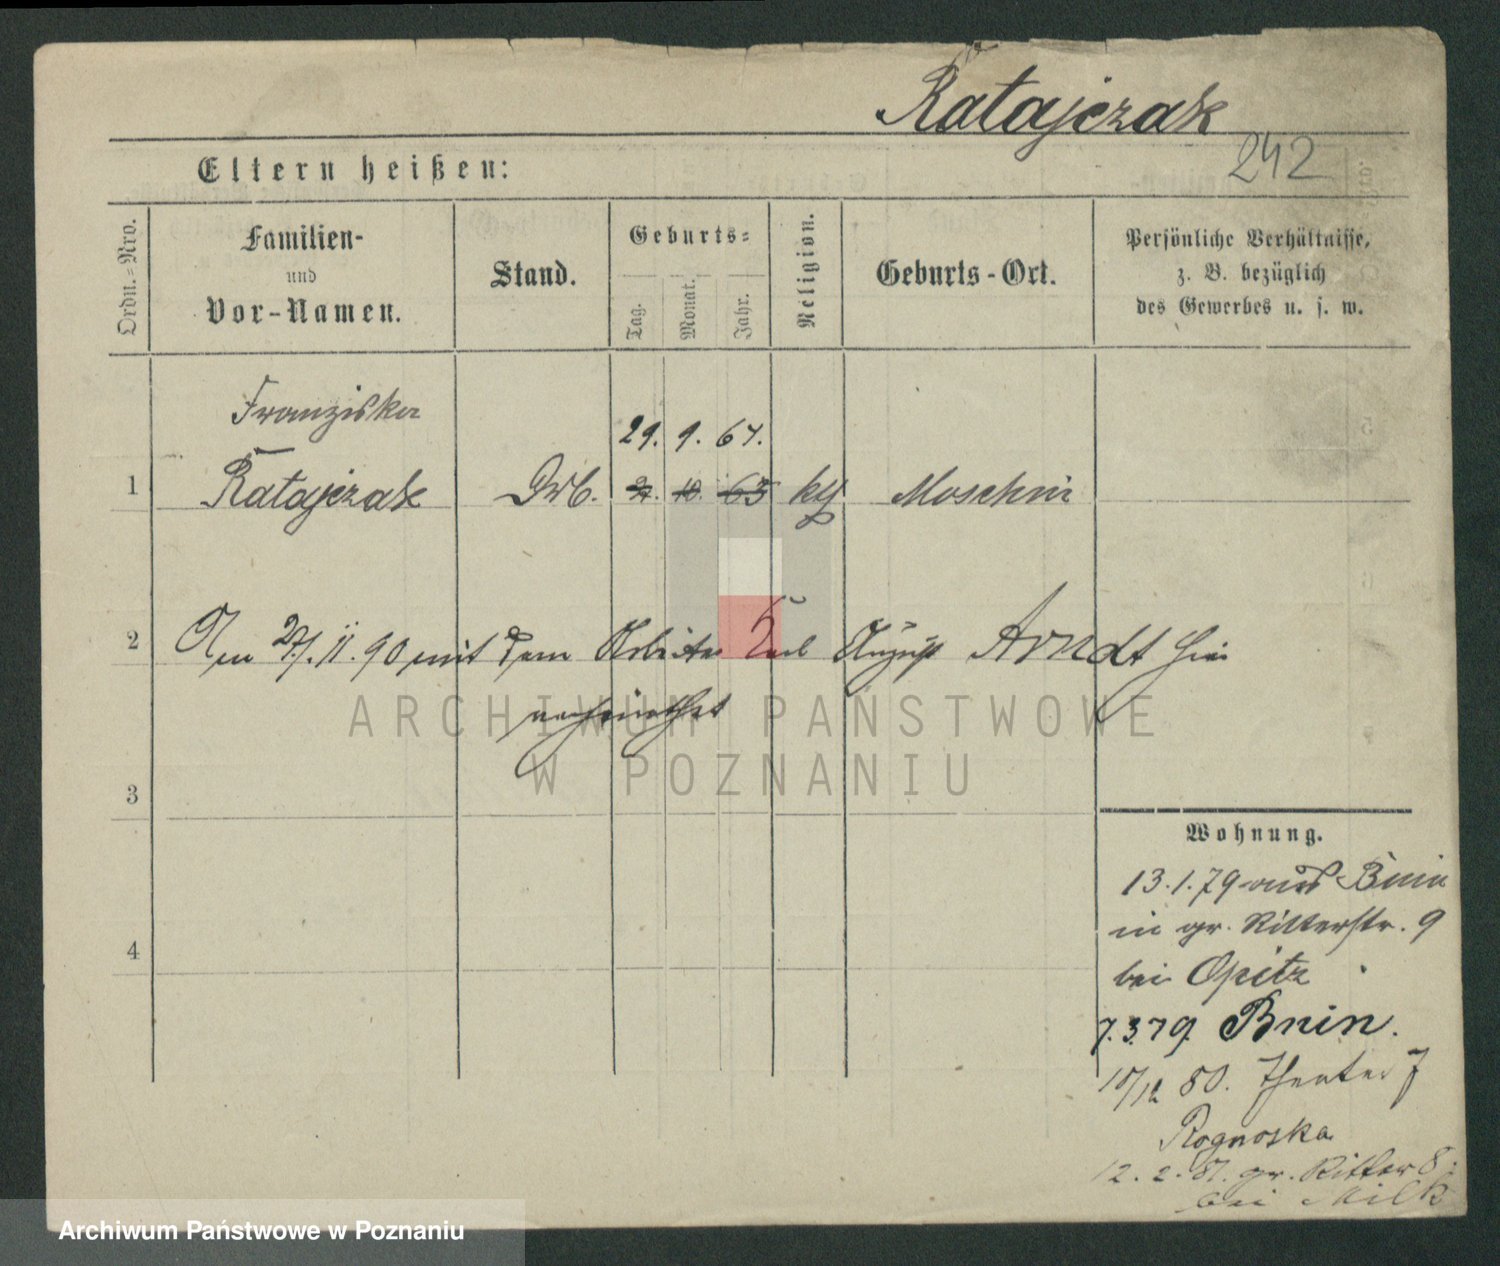 Ratajczak
242
Eltern heißen:
Ordn.=Nro.
Familien-
und
Vor-Namen.
Stand.
Geburts=
Tag.
Monat.
Jahr.
Religion.
Geburts-Ort.
Persönliche Verhältnisse,
z. B. bezüglich
des Gewerbes u. s. w.
Franziska
29. 9. 67.
1 Ratajczak 10. 65 kth Moschin
2 Am 27. 11. 90 mit dem Arbeiter Karl August Arndt hier
verheirathet
3
4
Wohnung.
13.1.79 aus Bnin
in gr. Ritterstr. 9
bei Opitz
7.3.79. Bnin.
10/12 80. Theater 7
Rognoska
12. 2. 81. gr. Ritter 8.
bei Milk
ARCHIWUM PAŃSTWOWE
W POZNANIU
Archiwum Państwowe w Poznaniu